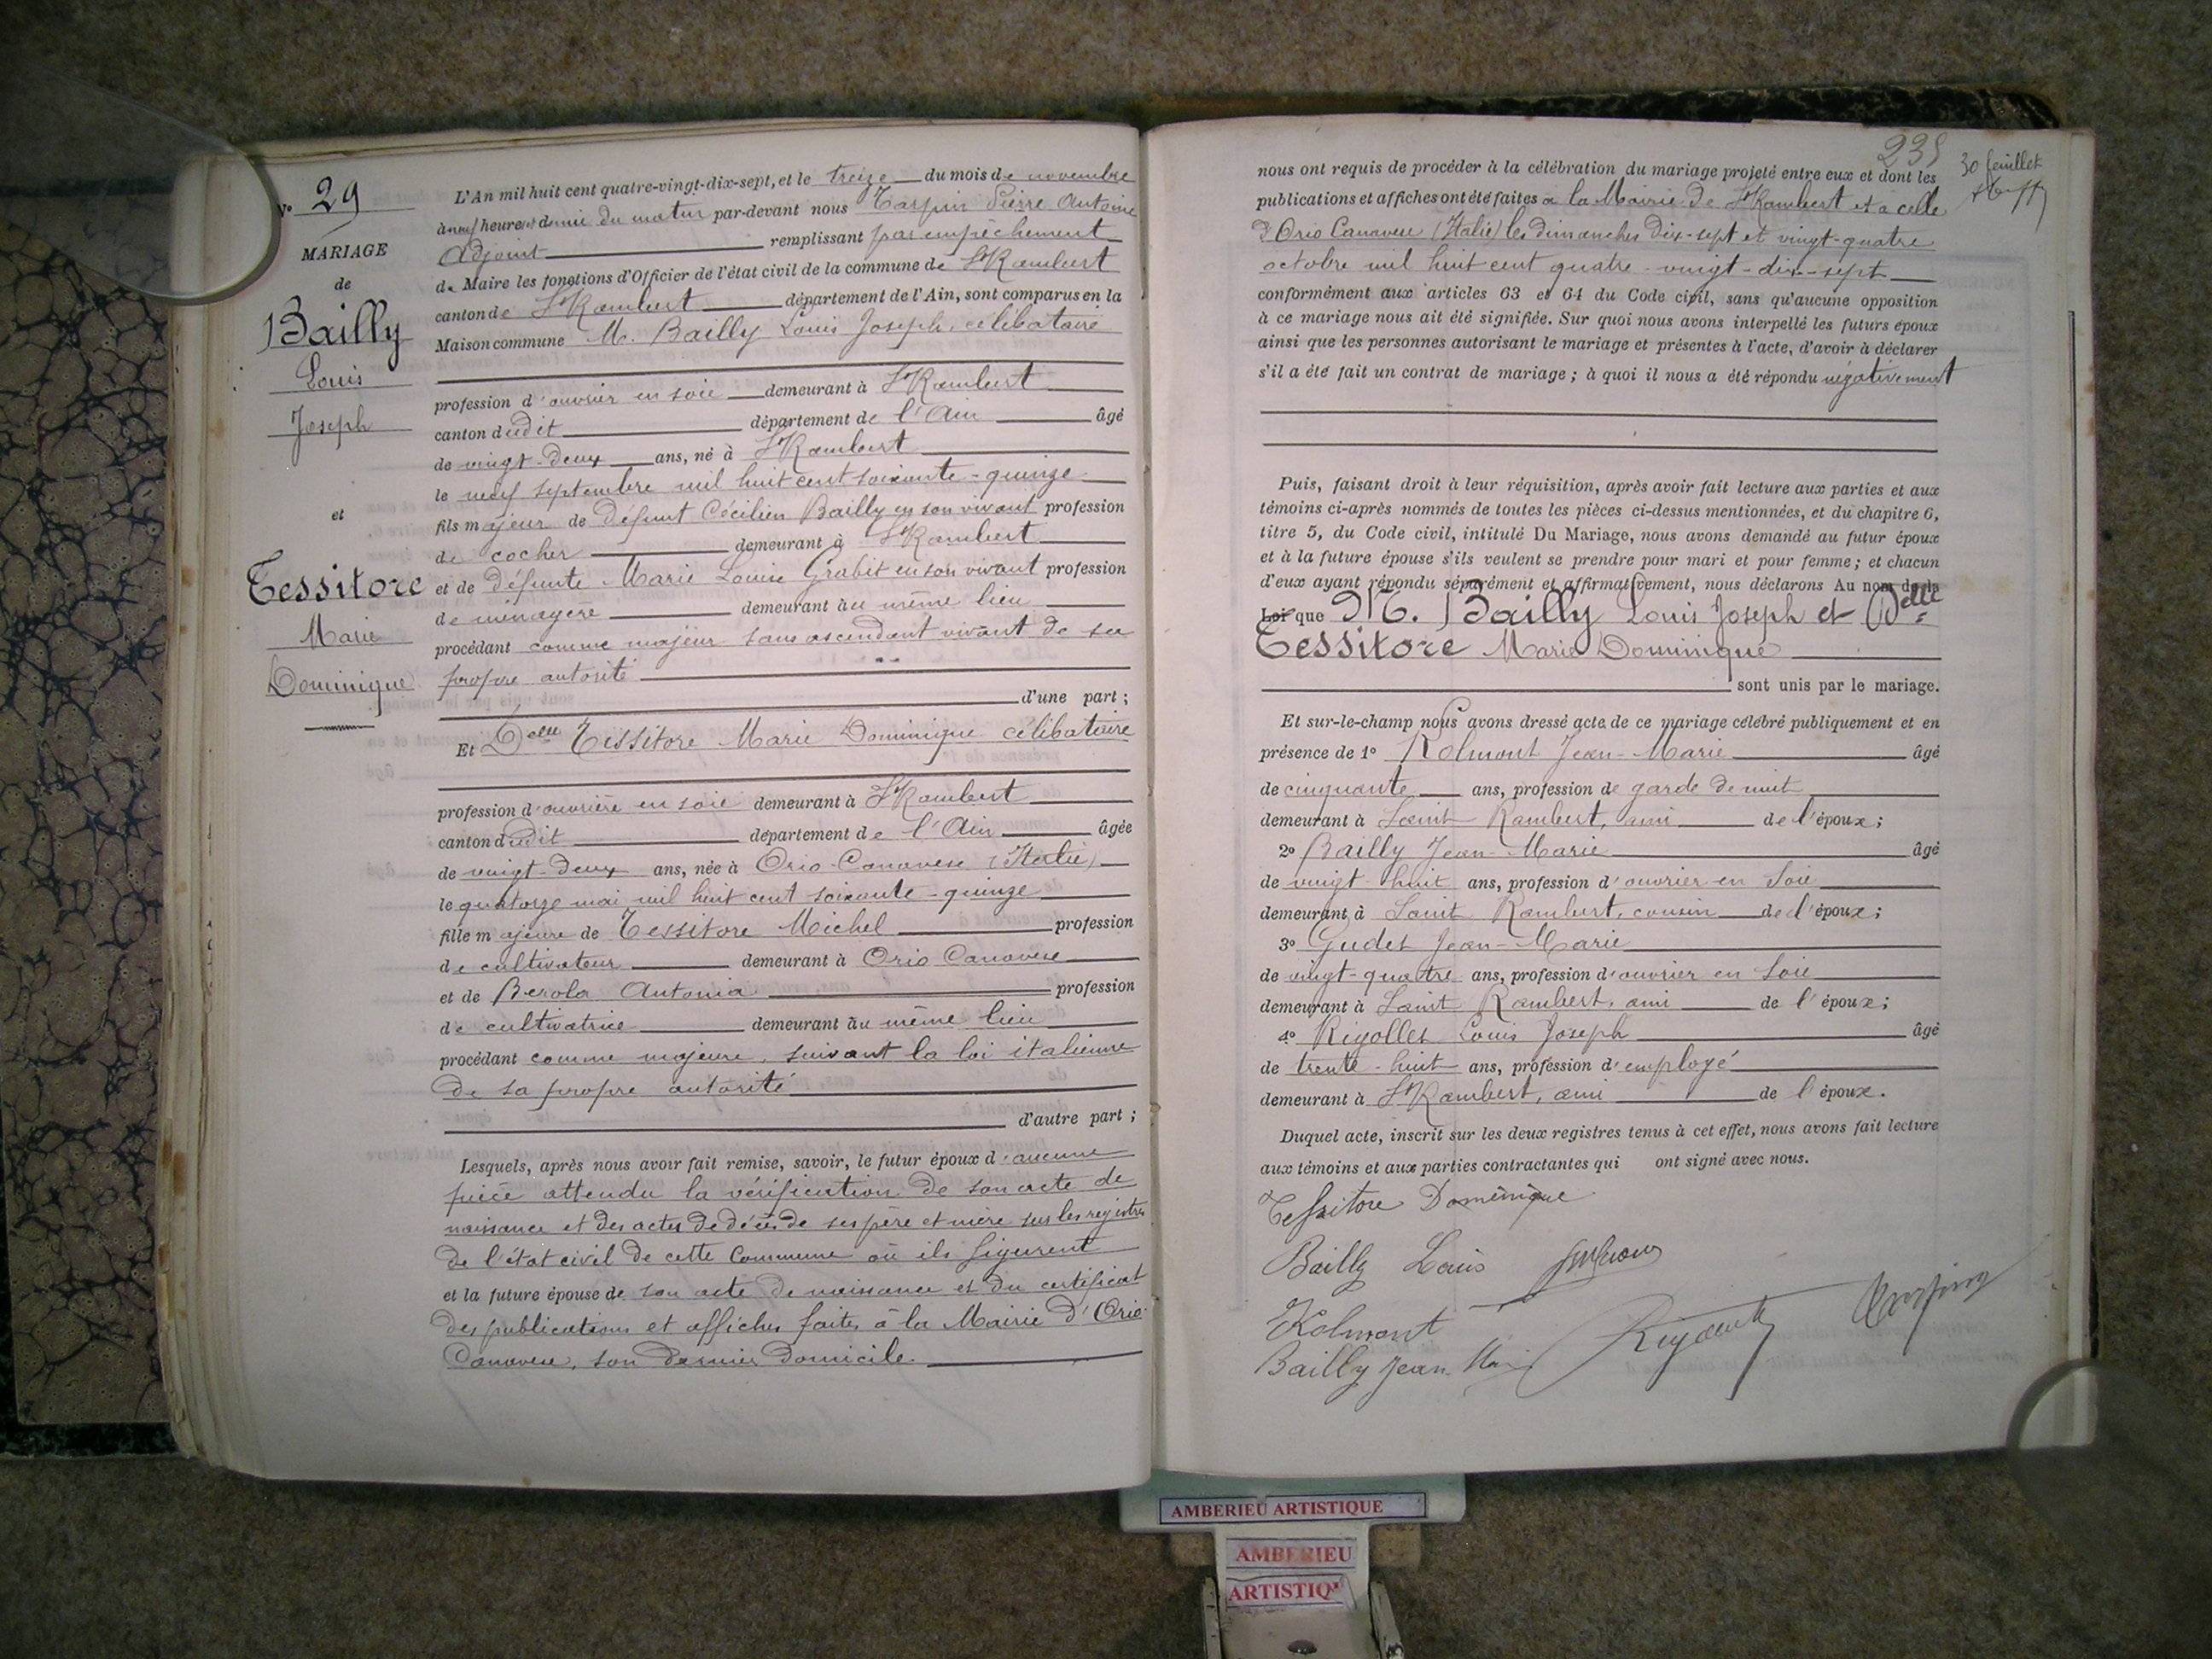 No 29
MARIAGE
de
Bailly
Louis
Joseph
et
Tessitore
Marie
Dominique
L'An mil huit cent quatre-vingt-dix-sept, et le treize du mois de novembre
à neuf heures et demie du matin par-devant nous Tarpin Pierre Antoine
Adjoint remplissant par empêchement
de Maire les fonctions d'Officier de l'état civil de la commune de St Rambert
canton de St Rambert département de l'Ain, sont comparus en la
Maison commune M. Bailly Louis Joseph, célibataire
profession d'ouvrier en soie demeurant à St Rambert
canton dudit département de l'Ain âgé
de vingt-deux ans, né à St Rambert
le neuf septembre mil huit cent soixante-quinze
fils majeur de défunt Cécilien Bailly en son vivant profession
de cocher demeurant à St Rambert
et de défunte Marie Louise Grabit en son vivant profession
de ménagère demeurant au même lieu
procédant comme majeur sans ascendant vivant de sa
propre autorité
d'une part ;
Et Delle Tessitore Marie Dominique célibataire
profession d'ouvrière en soie demeurant à St Rambert
canton dudit département de l'Ain âgée
de vingt-deux ans, née à Orio-Canavese (Italie)
le quatorze mai mil huit cent soixante-quinze
fille majeure de Tessitore Michel profession
de cultivateur demeurant à Orio Canavese
et de Berola Antonia profession
de cultivatrice demeurant au même lieu
procédant comme majeure, suivant la loi italienne
de sa propre autorité
d'autre part ;
Lesquels, après nous avoir fait remise, savoir, le futur époux d'aucune
pièce attendu la vérification de son acte de
naissance et des actes de décès de ses père et mère sur les registres
de l'état civil de cette Commune où ils figurent
et la future épouse de son acte de naissance et du certificat
des publications et affiches faites à la Mairie d'Orio
Canavese, son dernier domicile.
235
30 feuillet
nous ont requis de procéder à la célébration du mariage projeté entre eux et dont les
publications et affiches ont été faites à la Mairie de St Rambert et à celle
d'Orio Canavese (Italie) les dimanches dix-sept et vingt-quatre
octobre mil huit cent quatre-vingt-dix-sept
conformément aux articles 63 et 64 du Code civil, sans qu'aucune opposition
à ce mariage nous ait été signifiée. Sur quoi nous avons interpellé les futurs époux
ainsi que les personnes autorisant le mariage et présentes à l'acte, d'avoir à déclarer
s'il a été fait un contrat de mariage ; à quoi il nous a été répondu négativement
Puis, faisant droit à leur réquisition, après avoir fait lecture aux parties et aux
témoins ci-après nommés de toutes les pièces ci-dessus mentionnées, et du chapitre 6,
titre 5, du Code civil, intitulé Du Mariage, nous avons demandé au futur époux
et à la future épouse s'ils veulent se prendre pour mari et pour femme ; et chacun
d'eux ayant répondu séparément et affirmativement, nous déclarons Au nom de la
Loi que M. Bailly Louis Joseph et Delle
Tessitore Marie Dominique
sont unis par le mariage.
Et sur-le-champ nous avons dressé acte de ce mariage célébré publiquement et en
présence de 1o Kolmont Jean-Marie âgé
de cinquante ans, profession de garde de nuit
demeurant à Saint Rambert, ami de l'époux ;
2o Bailly Jean-Marie âgé
de vingt-huit ans, profession d'ouvrier en soie
demeurant à Saint Rambert, cousin de l'époux ;
3o Gudet Jean-Marie
de vingt-quatre ans, profession d'ouvrier en soie
demeurant à Saint Rambert, ami de l'époux ;
4o Rigollet Louis Joseph âgé
de trente-huit ans, profession d'employé
demeurant à St Rambert, ami de l'époux.
Duquel acte, inscrit sur les deux registres tenus à cet effet, nous avons fait lecture
aux témoins et aux parties contractantes qui ont signé avec nous.
Tessitore Doménique
Bailly Louis
Kolmont
Bailly Jean
AMBERIEU ARTISTIQUE
AMBERIEU
ARTISTIQ